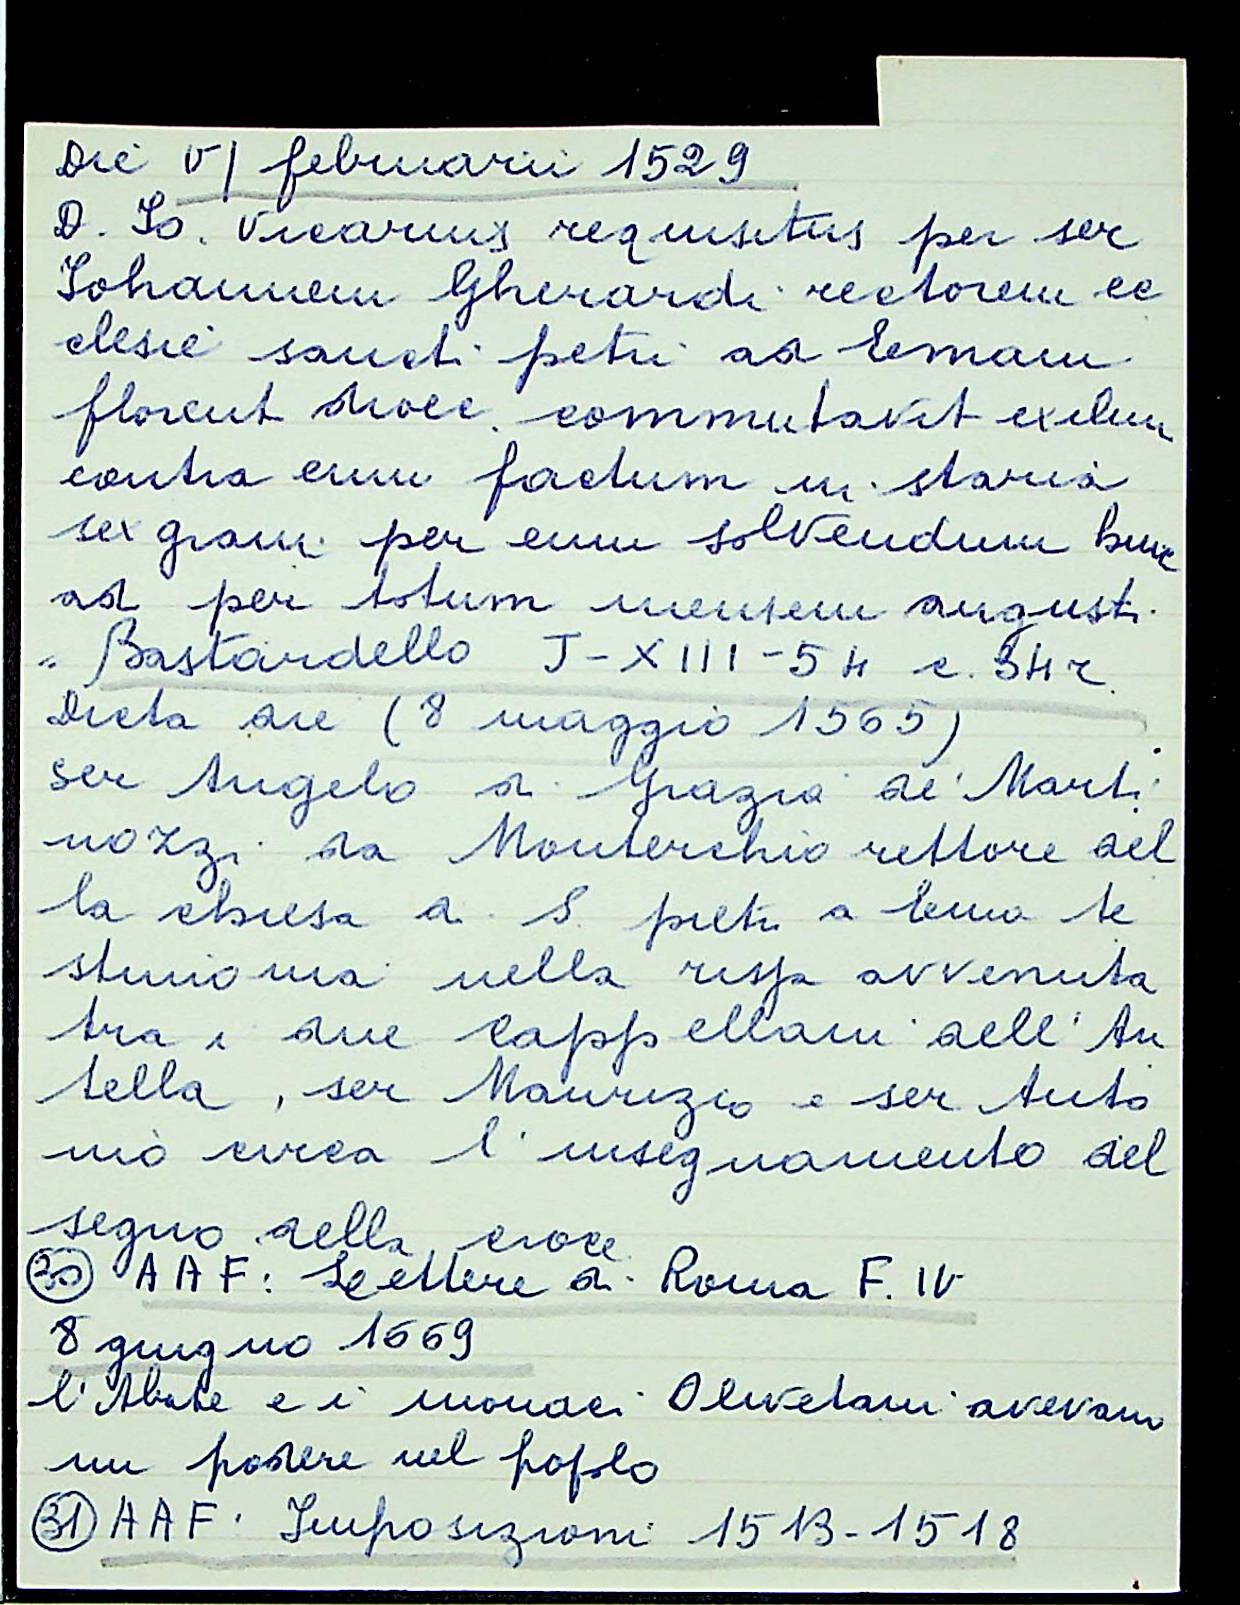 Die VI februarii 1529
D. Io. Vicarius requisitus per ser
Iohannem Gherardi rectorem ec
clesie sancti petri ad Emam
florent dioec. commutavit exilium
contra eum factum in staria
sex grani per eum solvendum hinc
ad per totum mensem augusti.
Bastardello J-XIII-54 c. 34r.
Dicta die (8 maggio 1565)
ser Angelo di Grazia de' Marti
nozzi da Monterchio rettore del
la chiesa di S. pietro a Ema te
stimonia nella rissa avvenuta
tra i due Cappellani dell'An
tella, ser Maurizio e ser Anto
nio circa l'insegnamento del
segno della croce
30 AAF: Lettere di Roma F. IV
8 giugno 1669
l'Abate e i monaci Olivetani avevano
un podere nel popolo
31 AAF: Imposizioni 1513-1518